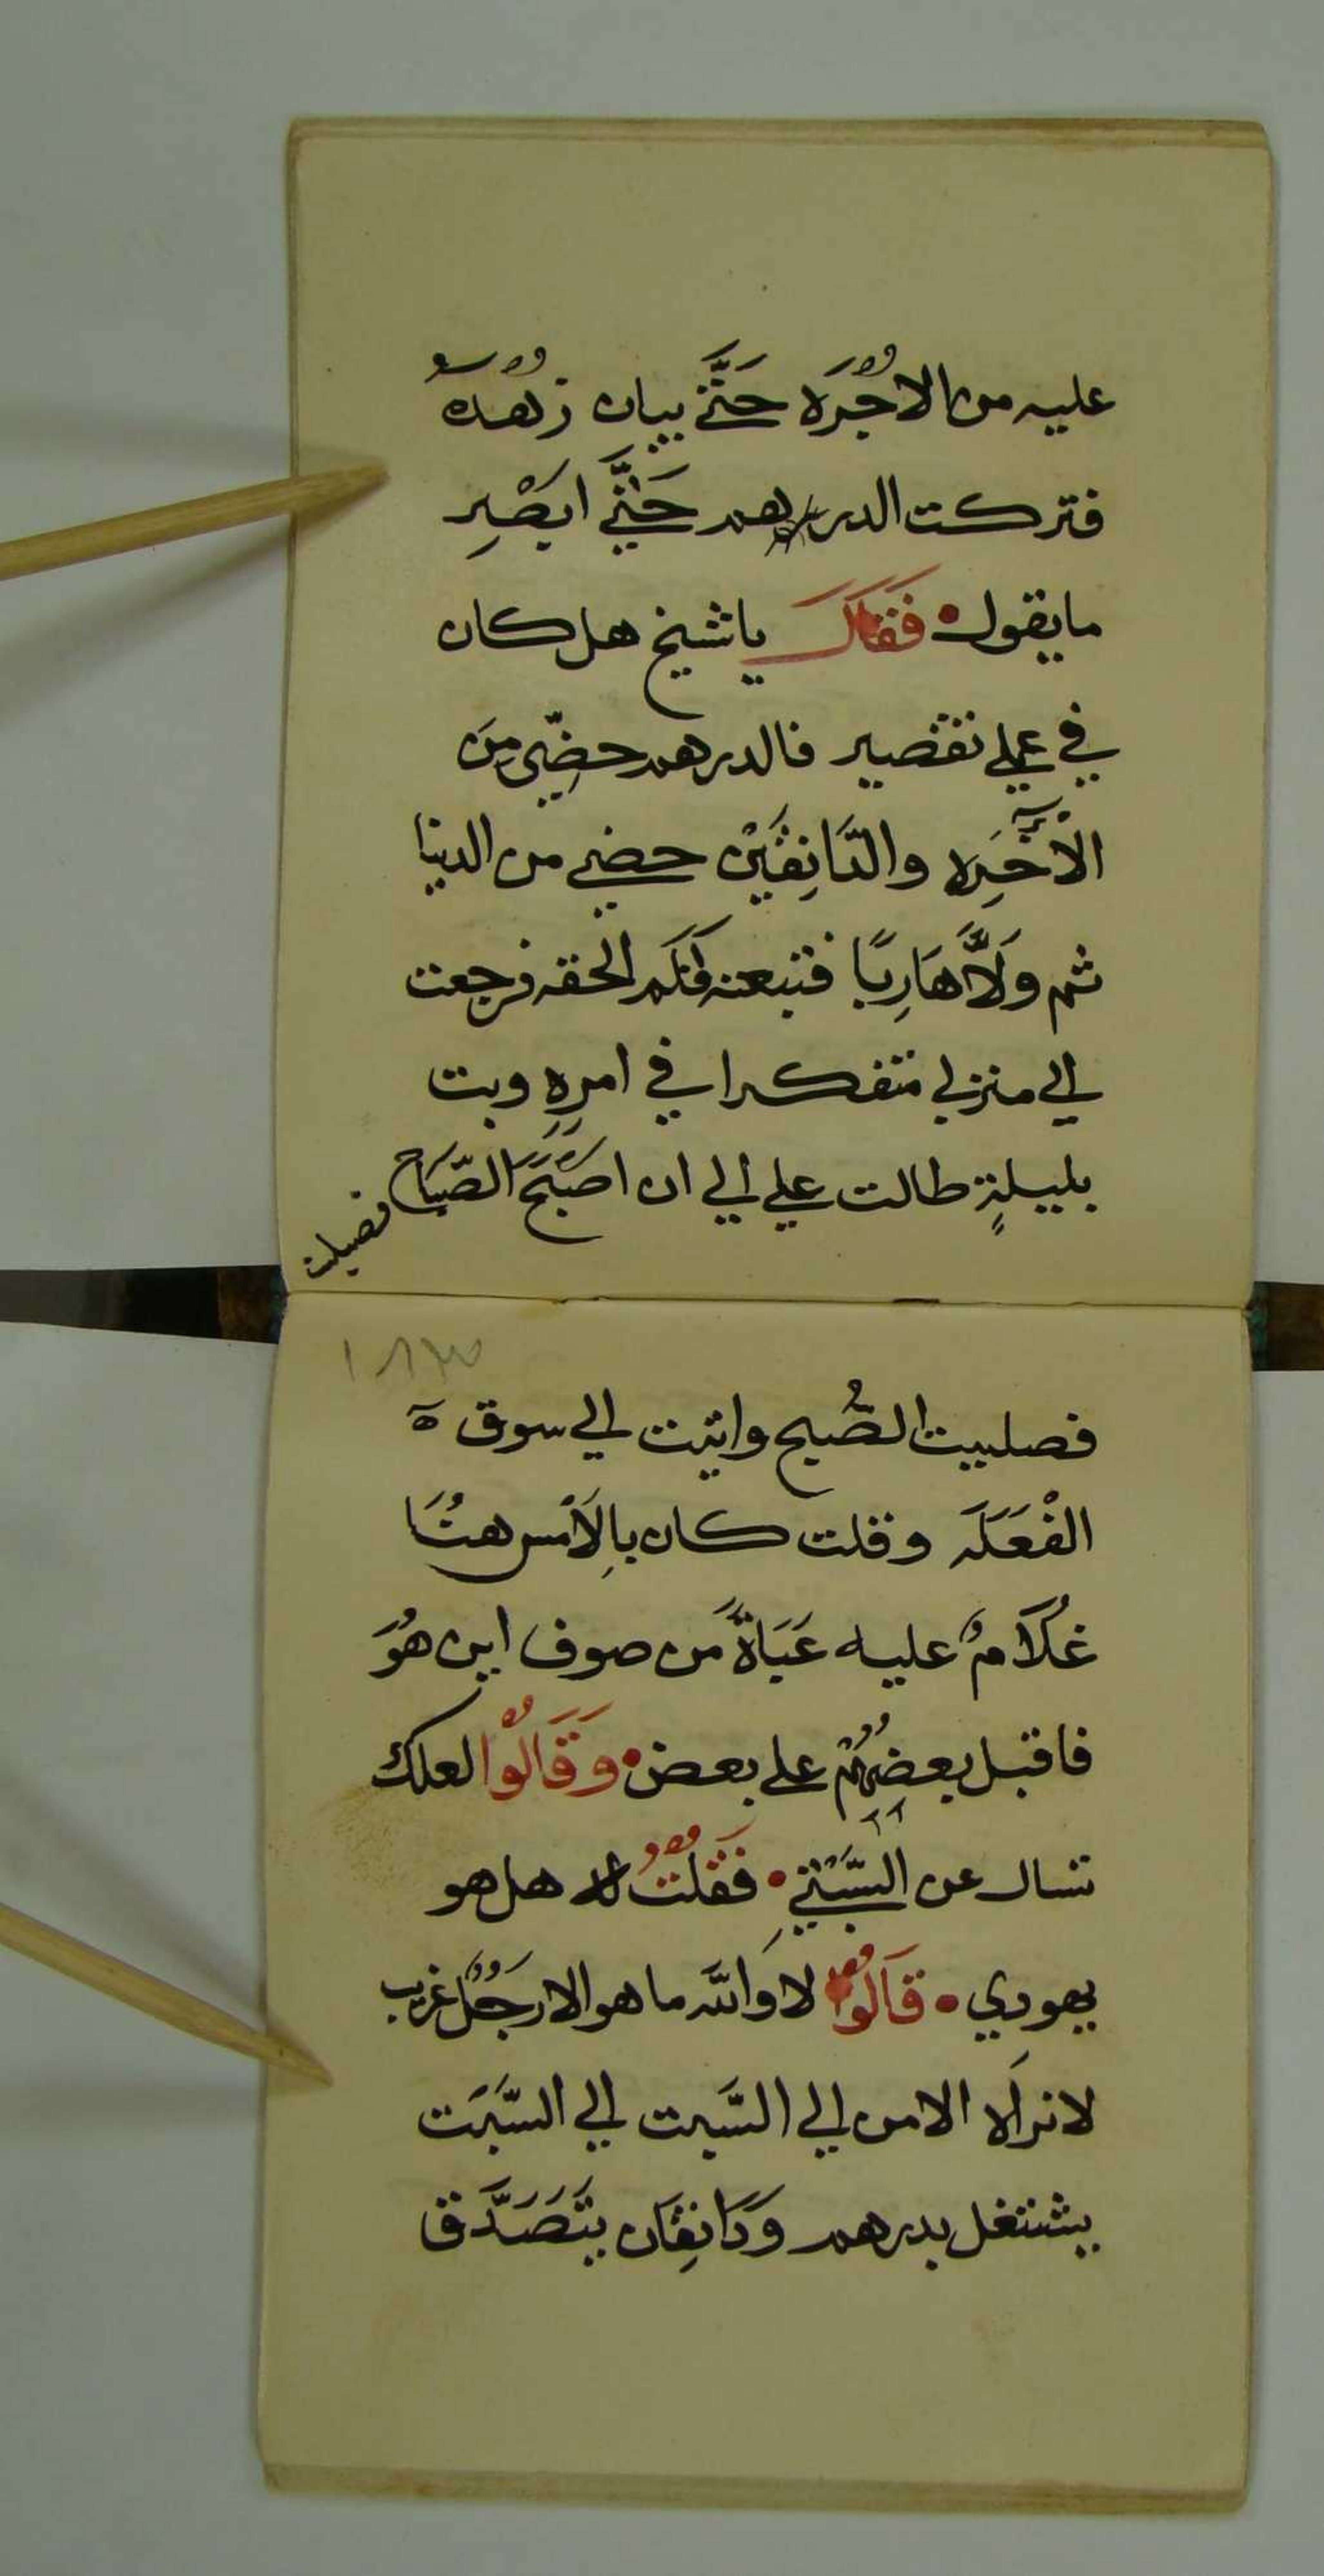 عليه من الاجُرَه حَتَّي يبان زُهدهُ
فتركت الدرهم حَتَّي ابصِر
ما يقول • فَقَالَ يا شيخ هل كان
في عملي تقصير فالدرهم حضِّي مِن
الْأَخِرَه والدَّانِقَيْن حضي من الدنيا
ثم وَلَّا هَارِبًا فتبعته فَلَم الحقه فرجعت
الي منزلي متفكرا في امرِهِ وبت
بليلةٍ طالت علي الي ان اصبَحَ الصَّبَاح
فصليت
١٨٣
فصليت الصُّبح واتيت الي سوق ه
الفْعَلَه وقلت كان بِالَامْس هنَُا
غُلَامٌ عليه عَبَاةً من صوف اين هُوَ
فاقبل بعضِهُم علي بعض • وَقَالُوا لعلك
تسال عن السَّبْتِي • فَقُلْتُ لا هل هو
يهودي • قَالُوا لا وَالله ما هو الا رجُلٌ غريب
لا نرَاه الا من الي السَّبت الي السَّبَت
يشتغل بدرهم وَدَانِقَان يتَصَدَّق